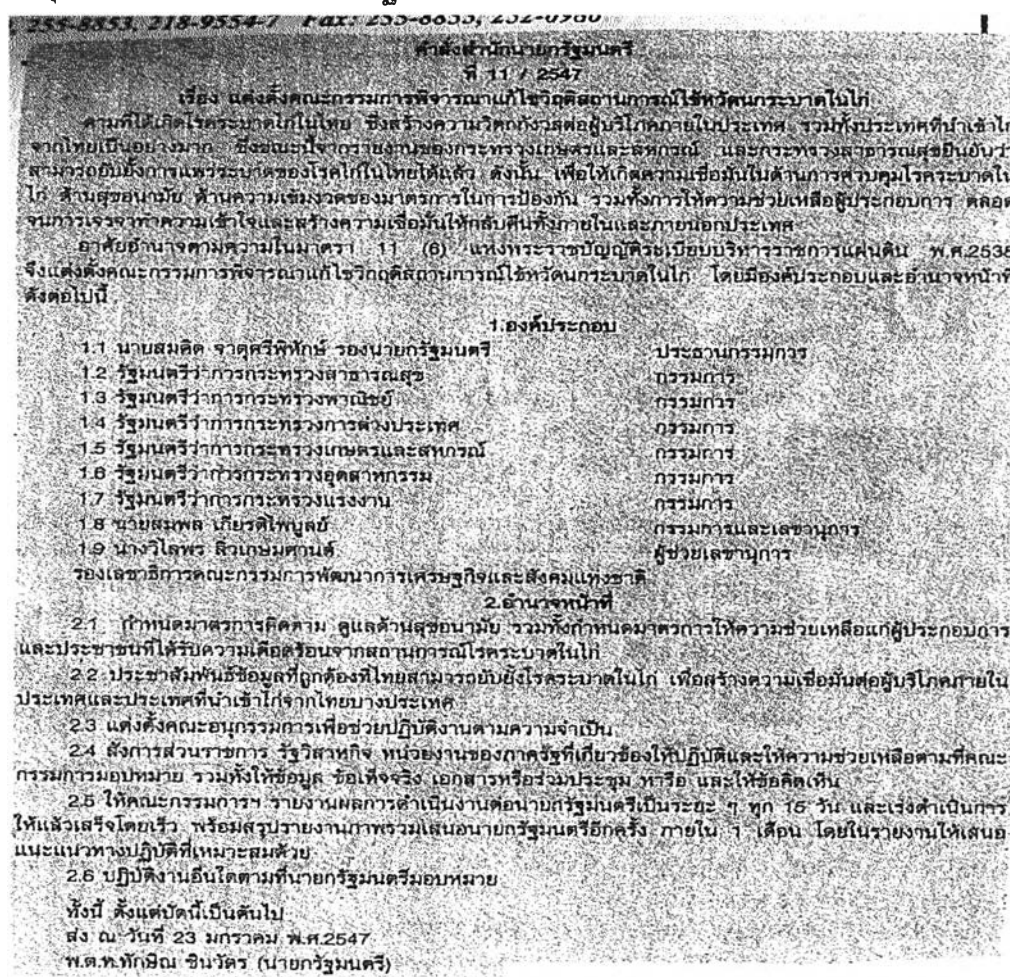 255-8853, 218-9554-7 Fax: 255-8855, 252-0980
คำสั่งสำนักนายกรัฐมนตรี
ที่ 11 / 2547
เรื่อง แต่งตั้งคณะกรรมการพิจารณาแก้ไขวิกฤติสถานการณ์ไข้หวัดนกระบาดในไก่
ตามที่ได้เกิดโรคระบาดไก่ในไทย ซึ่งสร้างความวิตกกังวลต่อผู้บริโภคภายในประเทศ รวมทั้งประเทศที่นำเข้าไก่
จากไทยเป็นอย่างมาก ซึ่งขณะนี้จากรายงานของกระทรวงเกษตรและสหกรณ์ และกระทรวงสาธารณสุขยืนยันว่า
สามารถยับยั้งการแพร่ระบาดของโรคไก่ในไทยได้แล้ว ดังนั้น เพื่อให้เกิดความเชื่อมั่นในด้านการควบคุมโรคระบาดใน
ไก่ ด้านสุขอนามัย ด้านความเข้มงวดของมาตรการในการป้องกัน รวมทั้งการให้ความช่วยเหลือผู้ประกอบการ ตลอด
จนการเจรจาทำความเข้าใจและสร้างความเชื่อมั่นให้กลับคืนทั้งภายในและภายนอกประเทศ
อาศัยอำนาจตามความในมาตรา 11 (6) แห่งพระราชบัญญัติระเบียบบริหารราชการแผ่นดิน พ.ศ.2535
จึงแต่งตั้งคณะกรรมการพิจารณาแก้ไขวิกฤติสถานการณ์ไข้หวัดนกระบาดในไก่ โดยมีองค์ประกอบและอำนาจหน้าที่
ดังต่อไปนี้
1.องค์ประกอบ
1.1 นายสมคิด จาตุศรีพิทักษ์ รองนายกรัฐมนตรี ประธานกรรมการ
1.2 รัฐมนตรีว่าการกระทรวงสาธารณสุข กรรมการ
1.3 รัฐมนตรีว่าการกระทรวงพาณิชย์ กรรมการ
1.4 รัฐมนตรีว่าการกระทรวงการต่างประเทศ กรรมการ
1.5 รัฐมนตรีว่าการกระทรวงเกษตรและสหกรณ์ กรรมการ
1.6 รัฐมนตรีว่าการกระทรวงอุตสาหกรรม กรรมการ
1.7 รัฐมนตรีว่าการกระทรวงแรงงาน กรรมการ
1.8 นายสมพล เกียรติไพบูลย์ กรรมการและเลขานุการ
1.9 นางวิไลพร ลิ่วเกษมศานต์ ผู้ช่วยเลขานุการ
รองเลขาธิการคณะกรรมการพัฒนาการเศรษฐกิจและสังคมแห่งชาติ
2.อำนาจหน้าที่
2.1 กำหนดมาตรการติดตาม ดูแลด้านสุขอนามัย รวมทั้งกำหนดมาตรการให้ความช่วยเหลือแก่ผู้ประกอบการ
และประชาชนที่ได้รับความเดือดร้อนจากสถานการณ์โรคระบาดในไก่
2.2 ประชาสัมพันธ์ข้อมูลที่ถูกต้องที่ไทยสามารถยับยั้งโรคระบาดในไก่ เพื่อสร้างความเชื่อมั่นต่อผู้บริโภคภายใน
ประเทศและประเทศที่นำเข้าไก่จากไทยบางประเทศ
2.3 แต่งตั้งคณะอนุกรรมการเพื่อช่วยปฏิบัติงานตามความจำเป็น
2.4 สั่งการส่วนราชการ รัฐวิสาหกิจ หน่วยงานของภาครัฐที่เกี่ยวข้องให้ปฏิบัติและให้ความช่วยเหลือตามที่คณะ
กรรมการมอบหมาย รวมทั้งให้ข้อมูล ข้อเท็จจริง เอกสารหรือร่วมประชุม หารือ และให้ข้อคิดเห็น
2.5 ให้คณะกรรมการฯ รายงานผลการดำเนินงานต่อนายกรัฐมนตรีเป็นระยะ ๆ ทุก 15 วัน และเร่งดำเนินการ
ให้แล้วเสร็จโดยเร็ว พร้อมสรุปรายงานภาพรวมเสนอนายกรัฐมนตรีอีกครั้ง ภายใน 1 เดือน โดยในรายงานให้เสนอ
แนะแนวทางปฏิบัติที่เหมาะสมด้วย
2.6 ปฏิบัติงานอื่นใดตามที่นายกรัฐมนตรีมอบหมาย
ทั้งนี้ ตั้งแต่บัดนี้เป็นต้นไป
สั่ง ณ วันที่ 23 มกราคม พ.ศ.2547
พ.ต.ท.ทักษิณ ชินวัตร (นายกรัฐมนตรี)